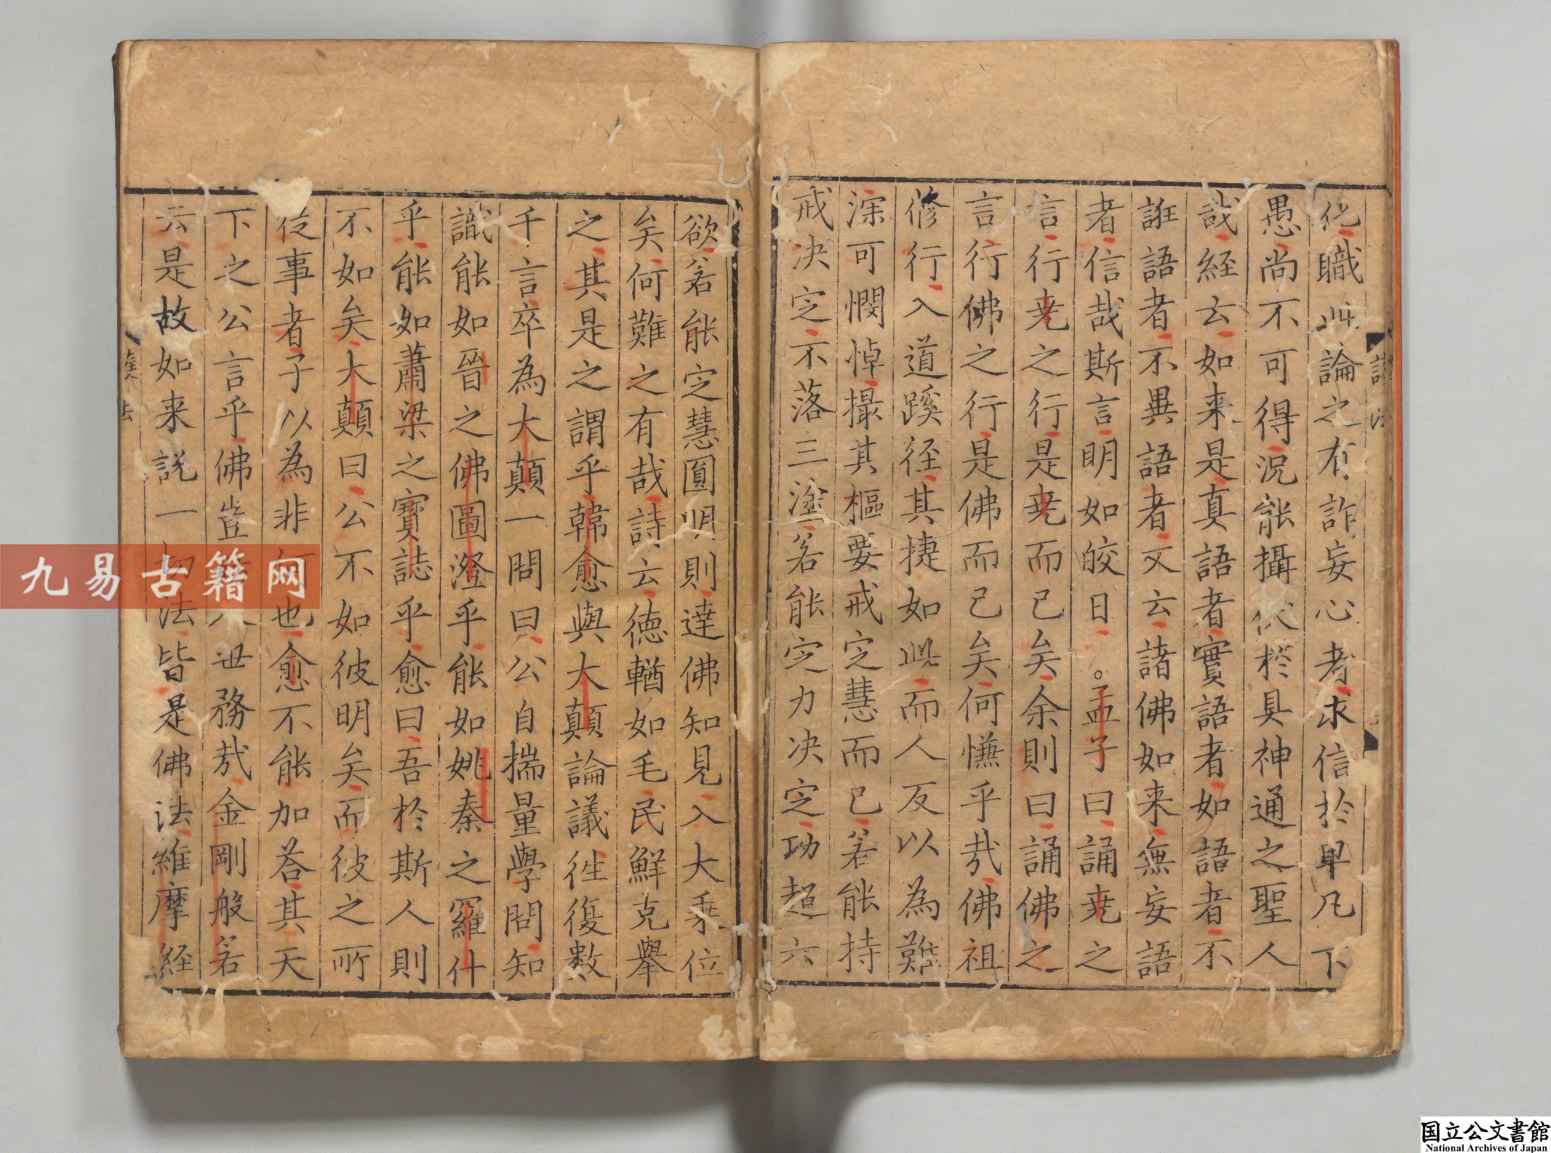 化職此論之有詐妄心者求信於卑凡下
愚尚不可得况能攝伏於具神通之聖人
哉經云如来是真語者實語者如語者不
誑語者不異語者又云諸佛如来無妄語
者信哉斯言明如皎日。孟子曰誦尭之
言行尭之行是尭而已矣余則曰誦佛之
言行佛之行是佛而已矣何慊乎㦲佛祖
修行入道蹊徑其捷如此而人反以為難
深可憫悼撮其樞要戒定慧而已若能持
戒决定不落三塗若能定力决定功超六
欲若能定慧圓明則達佛知見入大乘位
矣何難之有哉詩云德輶如毛民鮮克舉
之其是之謂乎韓愈與大顛論議徃復數
千言卒為大顛一問曰公自揣量學問知
識能如晉之佛圖澄乎能如姚秦之羅什
乎能如蕭梁之寳誌乎愈曰吾於斯人則
不如矣大顛曰公不如彼明矣而彼之所
從事者子以為非何也愈不能加荅其天
下之公言乎佛豈世務㦲金剛般若
云是故如来説一切法皆是佛法維摩經
九易古籍网
国立公文書館
National Archives of Japan